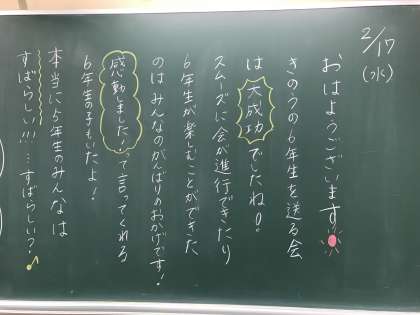 2/17
(水)
おはようございます
きのうの6年生を送る会
は大成功でしたね。
スムーズに会が進行できたり
6年生が楽しむことができた
のはみんなのがんばりのおかげです!
感動しました!って言ってくれる
6年生の子もいたよ!
本当に5年生のみんなは
すばらしい!!!…すばらしい?♪